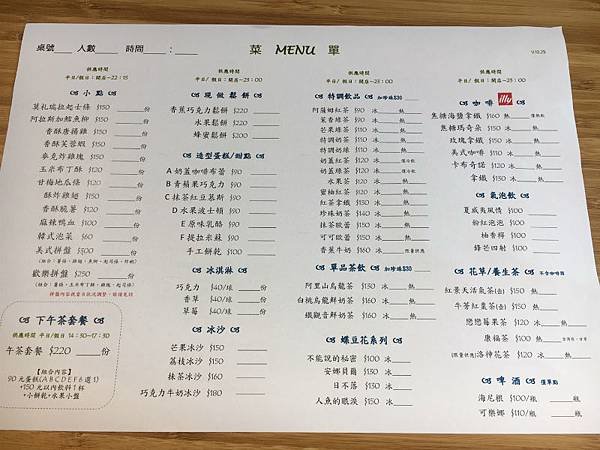 桌號____ 人數____ 時間____:____
菜 MENU 單
供應時間
平日/假日:開店~22:15
小點
莫札瑞拉起士條 $150 ____份
阿拉斯加鱈魚柳 $150
香酥唐揚雞 $150
香酥芙蓉蝦 $150
麥克炸雞塊 $150
玉米布丁酥 $120
甘梅地瓜條 $120
酥炸雞翅 $150
香酥脆薯 $120
麻辣鴨血 $100
韓式泡菜 $60
美式拼盤 $500
歡樂拼盤 $250
下午茶套餐
供應時間 平日/假日 14:30~17:30
午茶套餐 $220 ____份
【組合內容】
90元蛋糕(ABCDEF6選1)
+150元以內飲料1杯
+小餅乾+水果小盤
供應時間
平日/假日:開店~23:00
現做鬆餅
香蕉巧克力鬆餅 $220
水果鬆餅 $220
蜂蜜鬆餅 $200
造型蛋糕/甜點
A 奶蓋咖啡布蕾 $90
B 青蘋果巧克力 $90
C 抹茶紅豆慕斯 $90
D 水果波士頓 $90
E 原味乳酪 $90
F 提拉米蘇 $90
手工餅乾 $100
冰淇淋
巧克力 $40/球 ____份
香草 $40/球 ____份
草莓 $40/球 ____份
冰沙
芒果冰沙 $150
荔枝冰沙 $150
抹茶冰沙 $160
巧克力牛奶冰沙 $180
供應時間
平日/假日:開店~23:00
特調飲品 加珍珠$30
阿薩姆紅茶 $90 冰____熱
茉香綠茶 $90 冰____熱
芒果綠茶 $110 冰____熱
特調奶茶 $110 冰____熱
特調奶綠 $110 冰____熱
奶蓋紅茶 $120 冰____僅冷飲
奶蓋綠茶 $120 冰____僅冷飲
水果茶 $120 冰____熱
蜜柚紅茶 $120 冰____熱
紅茶拿鐵 $130 冰____熱
珍珠奶茶 $140 冰____熱
抹茶歐蕾 $150 冰____熱
可可歐蕾 $150 冰____熱
香蕉牛奶 $160 冰____限量供應
單品茶飲 加珍珠$30
阿里山烏龍茶 $130 冰____熱
白桃烏龍鮮奶茶 $160 冰____熱
鐵觀音鮮奶茶 $160 冰____熱
蝶豆花系列
不能說的秘密 $100 冰
安娜貝爾 $130 冰
日不落 $130 冰
人魚的眼淚 $150 冰
V.10.25
供應時間
平日/假日:開店~23:00
咖啡 illy
焦糖海鹽拿鐵 $160 熱 僅熱飲
焦糖瑪奇朵 $150 冰____熱
玫瑰拿鐵 $150 冰____熱
美式咖啡 $110 冰____熱
卡布奇諾 $120 冰____熱
拿鐵 $130 冰____熱
氣泡飲
夏威夷風情 $100 冰
粉紅泡泡 $100 冰
柚香檸 $100 冰
鋒芒四射 $100 冰
花草/養生茶 不含咖啡因
紅景天活氣茶(壺) $150 熱
牛蒡紅棗茶(壺) $150 熱
戀戀莓果茶 $120 冰____熱
康福茶 $100 熱
(限量供應)洛神花茶 $120 冰____熱
啤酒 僅單點
海尼根 $100/瓶 ____瓶
可樂娜 $110/瓶 ____瓶